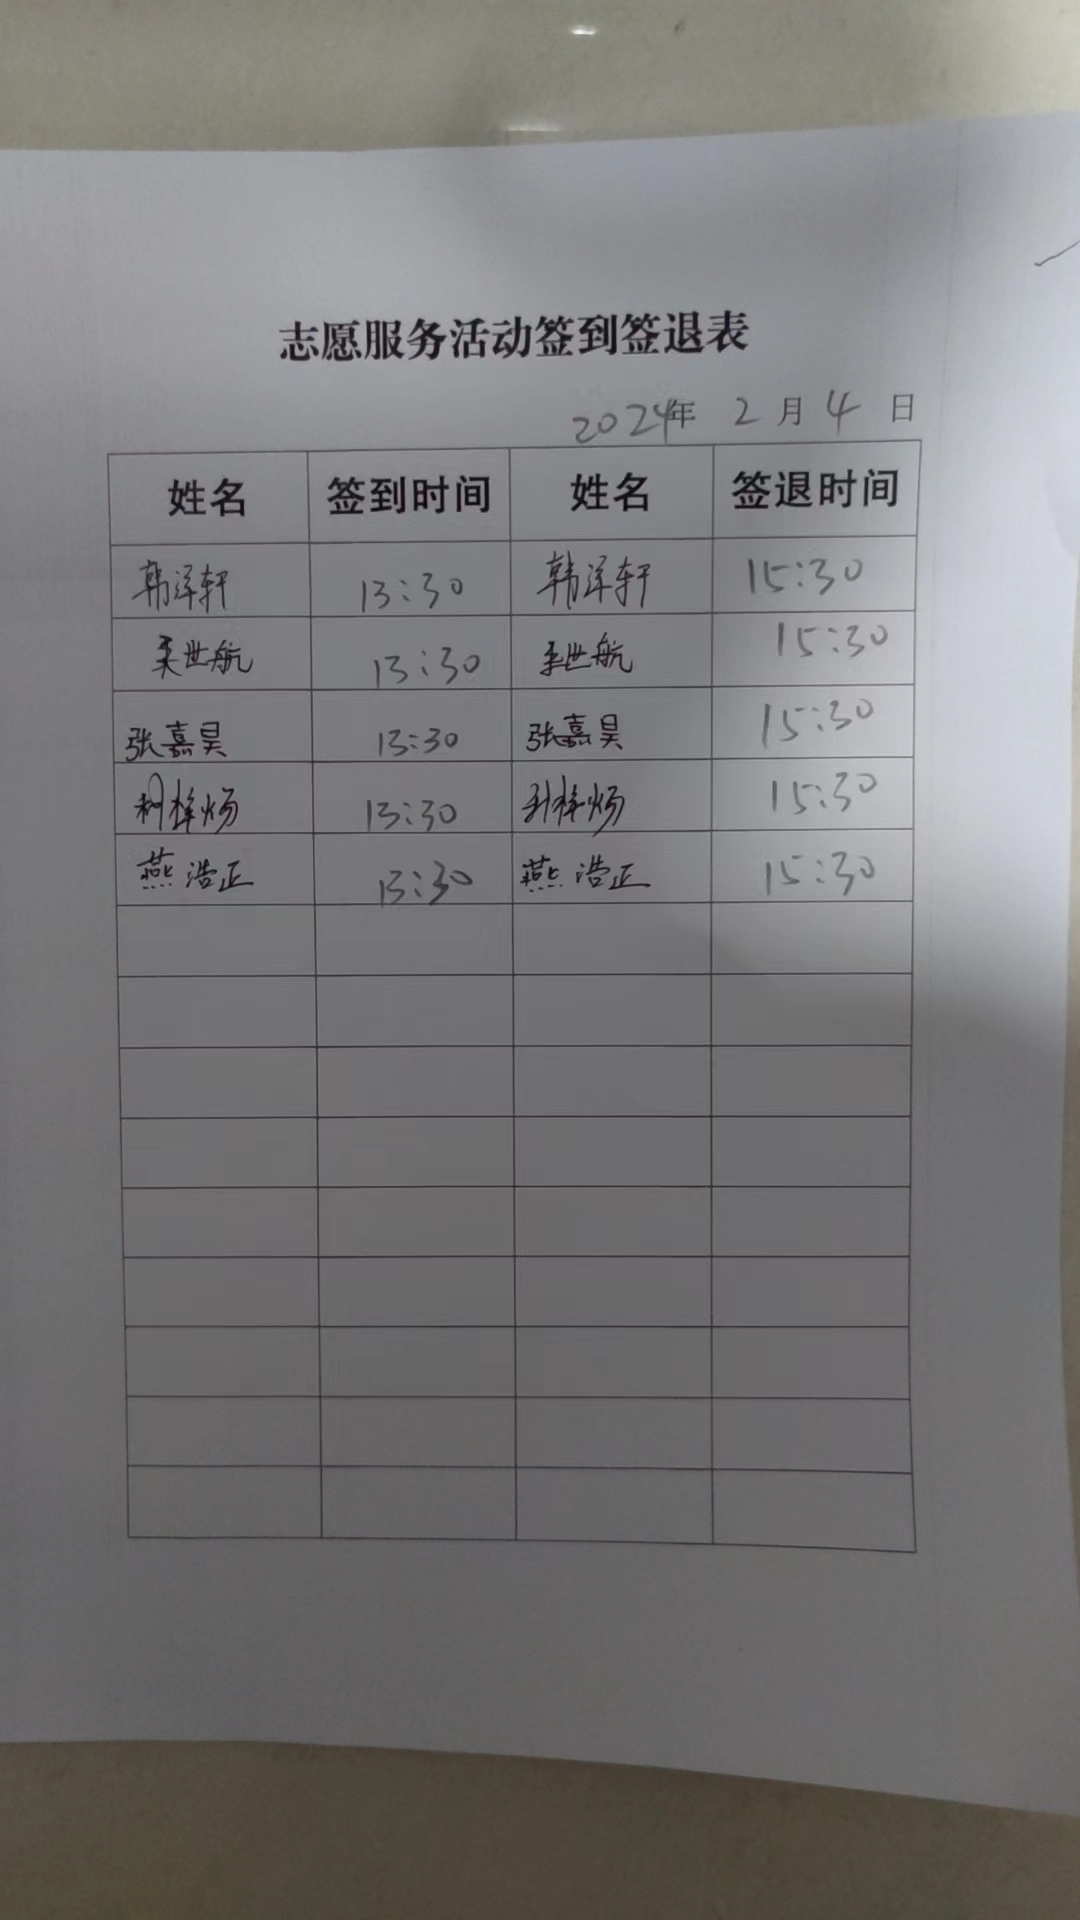 志愿服务活动签到签退表
2024年 2 月 4 日
姓名 签到时间 姓名 签退时间
韩洋轩 13:30 韩洋轩 15:30
世航 13:30 世航 15:30
张嘉昊 13:30 张嘉昊 15:30
13:30 15:30
燕浩正 13:30 燕浩正 15:30